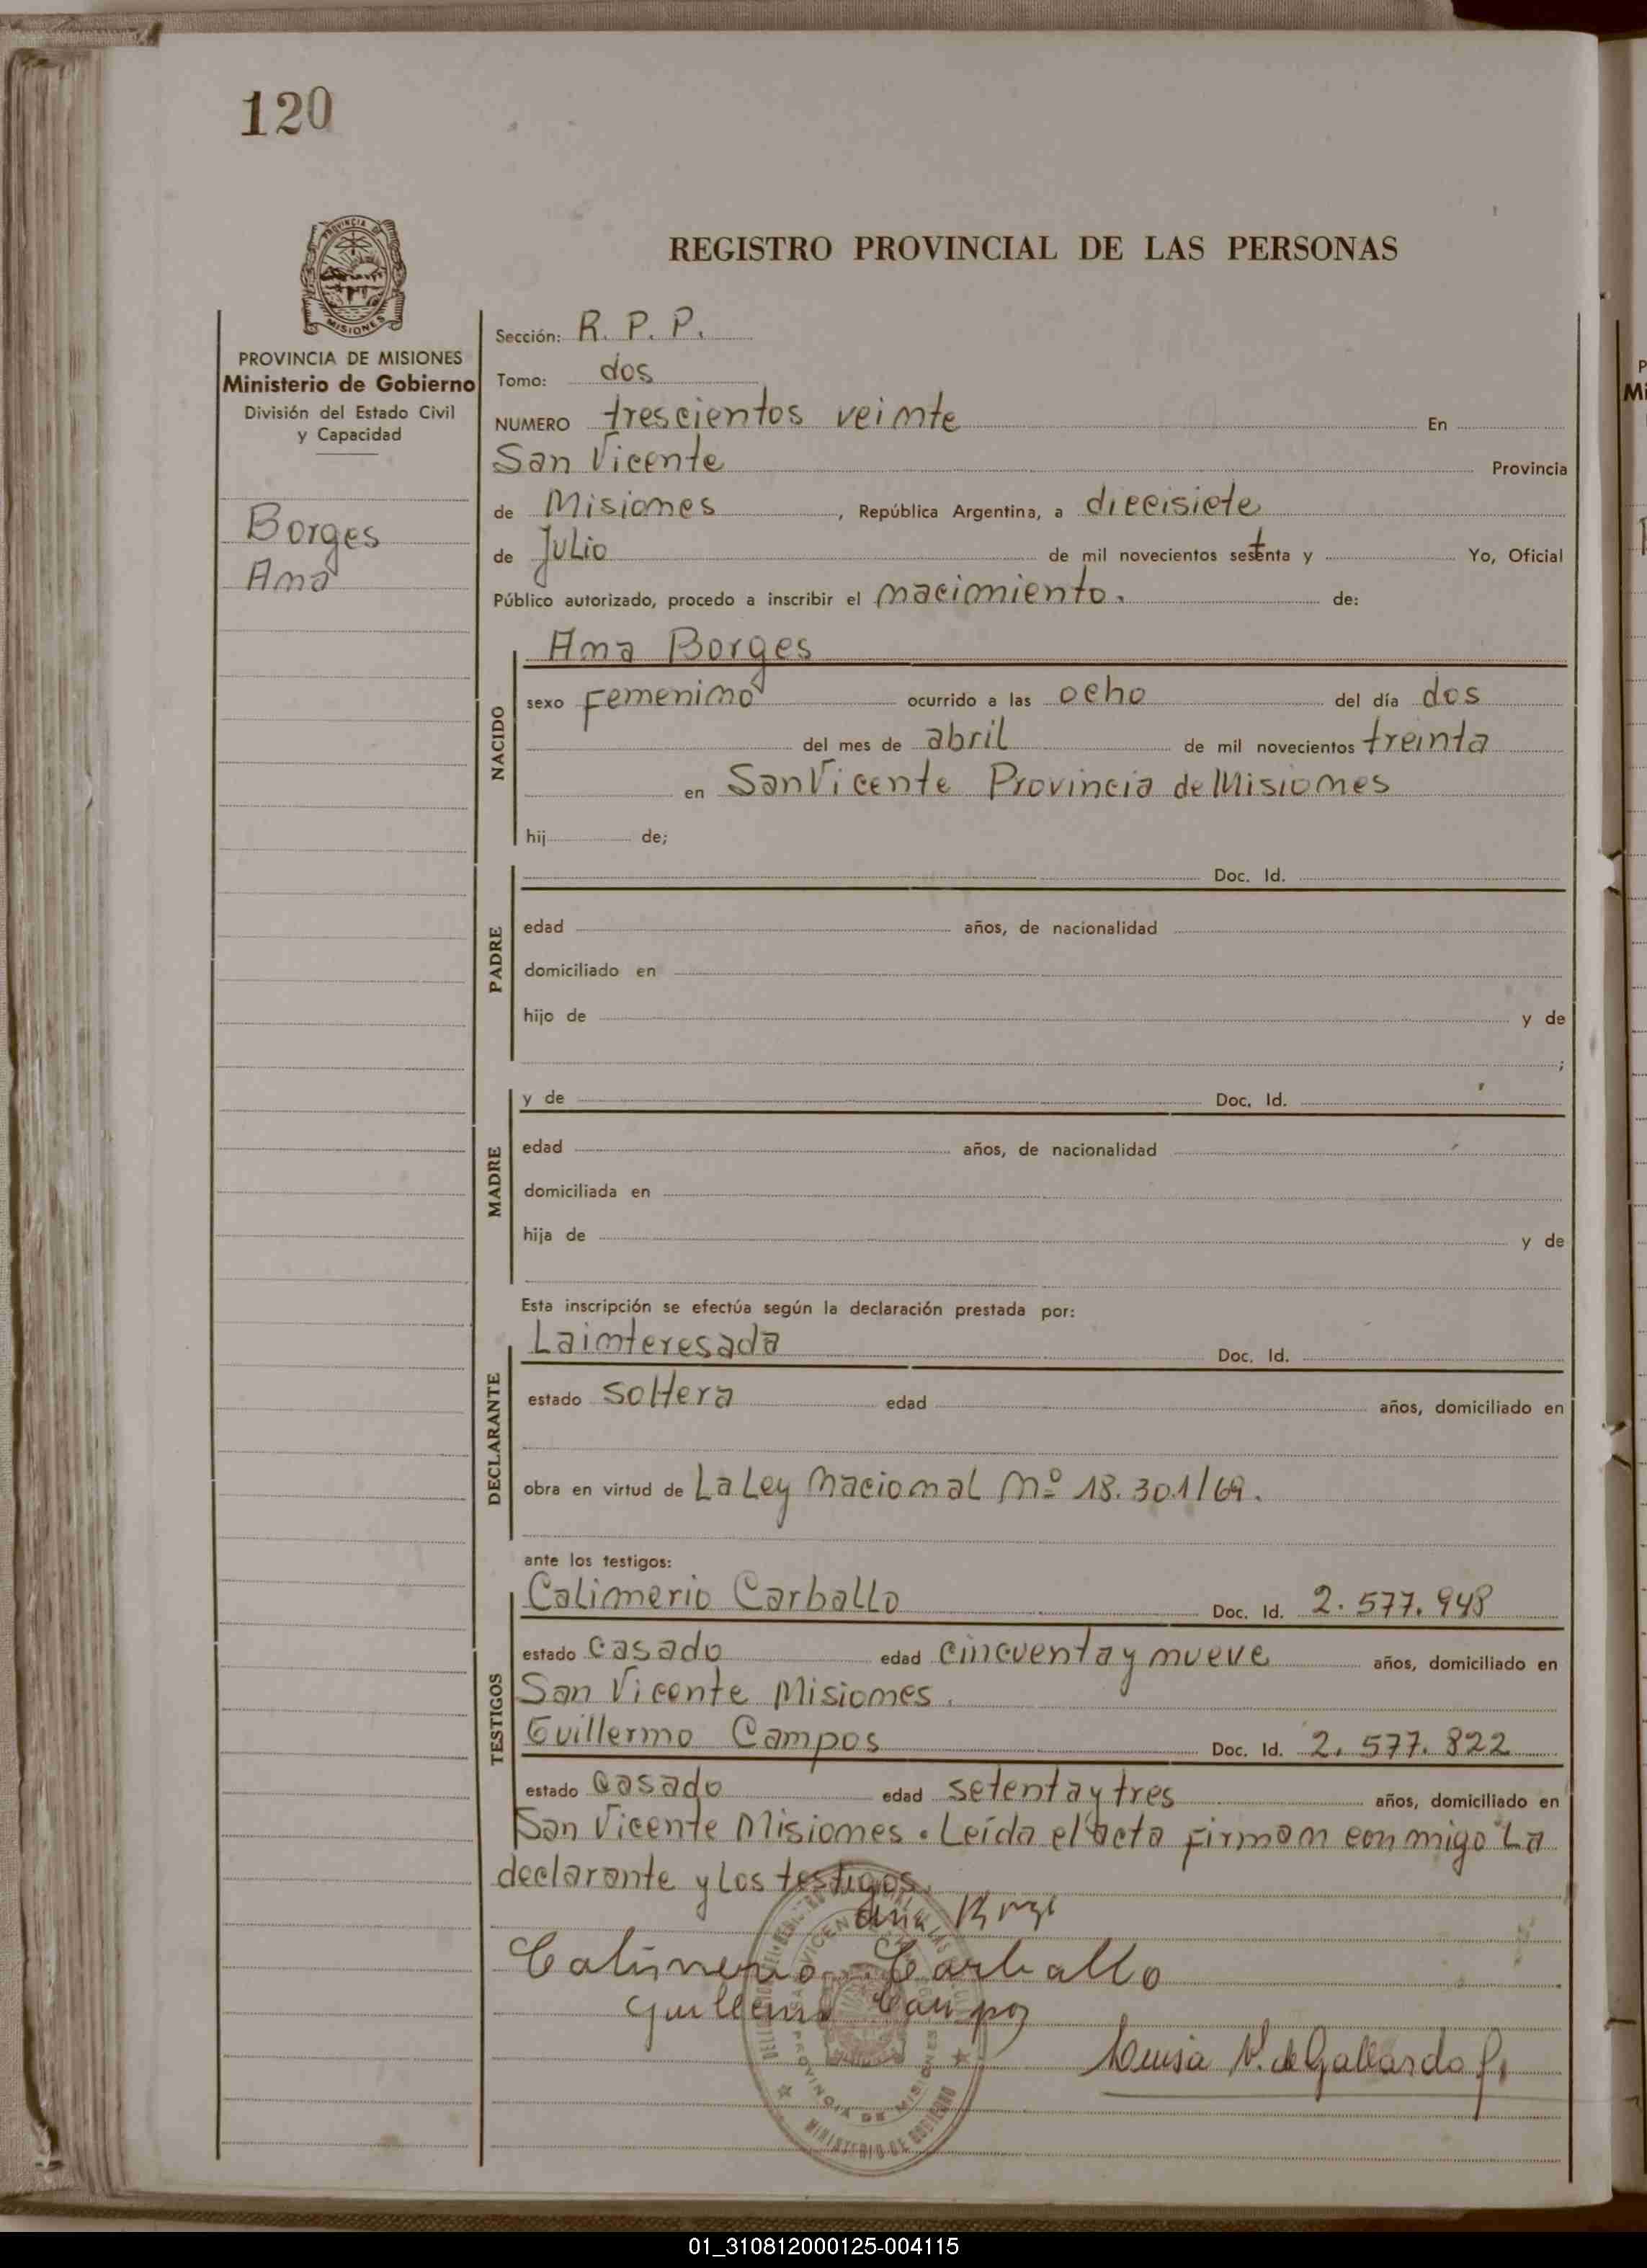 120
PROVINCIA DE
MISIONES
REGISTRO PROVINCIAL DE LAS PERSONAS
PROVINCIA DE MISIONES
Ministerio de Gobierno
División del Estado Civil
y Capacidad
Borges
Ana
Sección: R. P. P.
Tomo: dos
NUMERO trescientos veinte En
San Vicente Provincia
de Misiones, República Argentina, a diecisiete
de Julio de mil novecientos setenta y Yo, Oficial
Público autorizado, procedo a inscribir el nacimiento. de:
NACIDO
Ana Borges
sexo Femenino ocurrido a las ocho del día dos
del mes de abril de mil novecientos treinta
en San Vicente Provincia de Misiones
hij de;
PADRE
Doc. Id.
edad años, de nacionalidad
domiciliado en
hijo de y de
;
MADRE
y de Doc. Id.
edad años, de nacionalidad
domiciliada en
hija de y de
Esta inscripción se efectúa según la declaración prestada por:
DECLARANTE
La interesada Doc. Id.
estado soltera edad años, domiciliado en
obra en virtud de La Ley Nacional Nº 18.301/69.
ante los testigos:
TESTIGOS
Calimerio Carballo Doc. Id. 2.577.948
estado casado edad cincuenta y nueve años, domiciliado en
San Vicente Misiones.
Guillermo Campos Doc. Id. 2.577.822
estado casado edad setenta y tres años, domiciliado en
San Vicente Misiones. Leída el acta firman conmigo La
declarante y Los testigos.
Ana
Calimerio Carballo
Guillermo Campos
Luisa V. de Gallardo
PROVINCIA DE MISIONES
MINISTERIO DE GOBIERNO
01_310812000125-004115